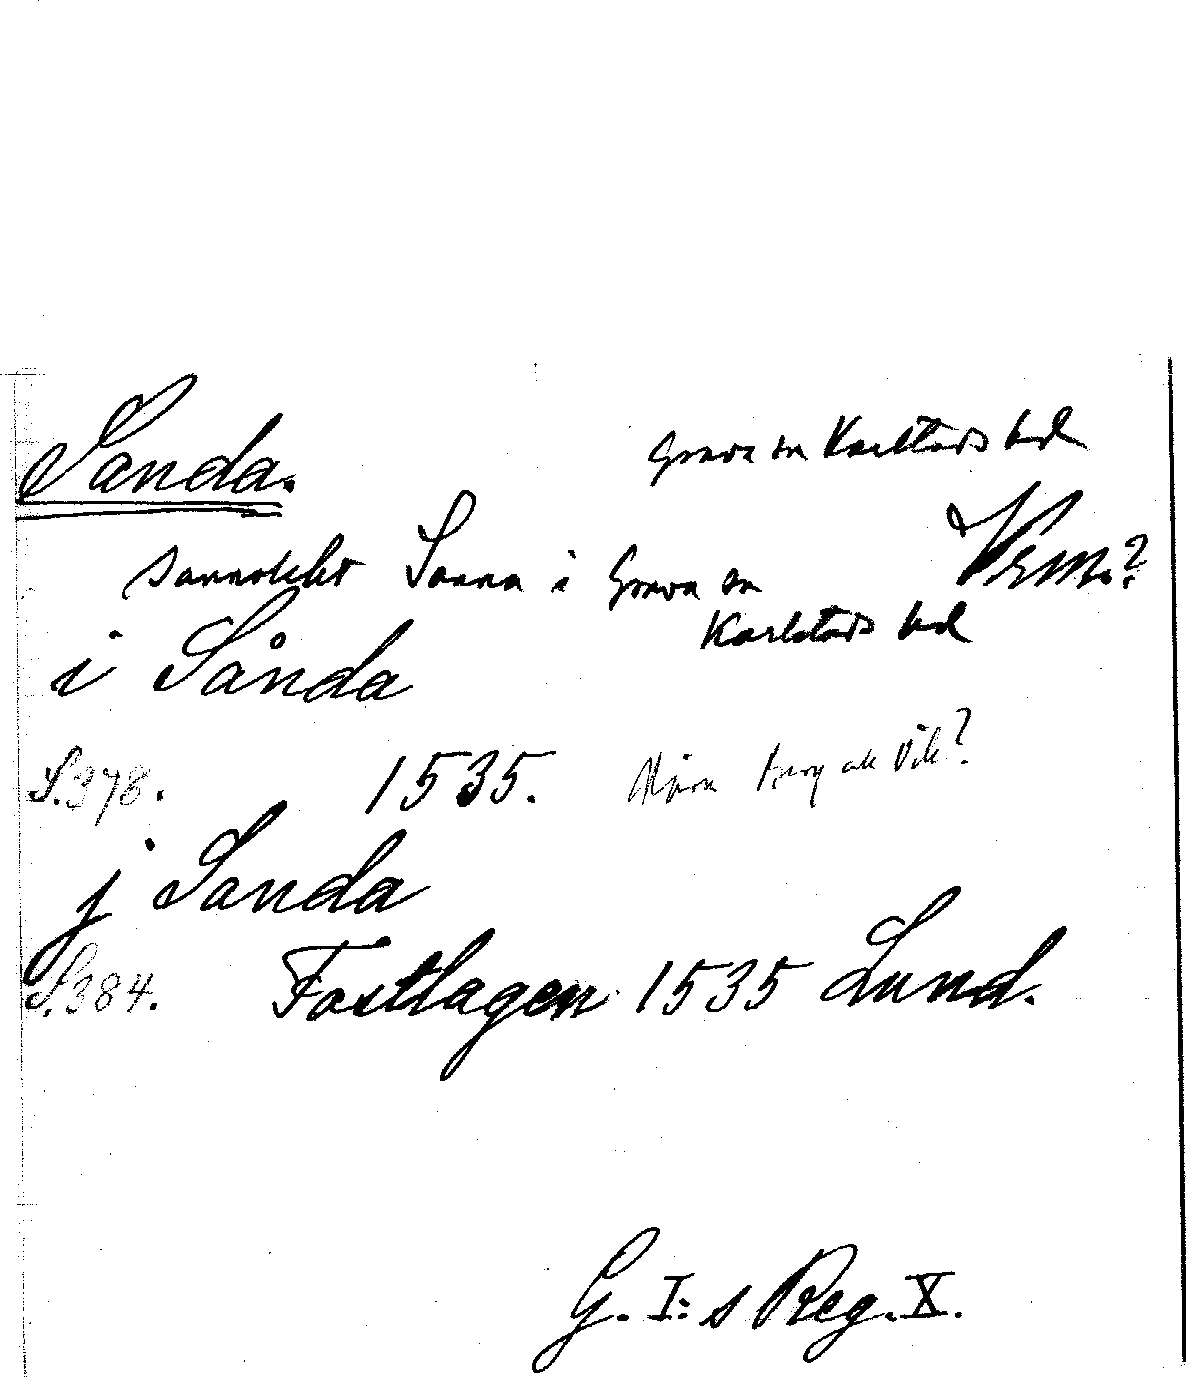 Sanda.
Grava sn Karlstads hd
Vrm.?
sannolikt Sanna i Grava sn
Karlstads hd
i Sånda
S. 378. 1535. Nära Berg och Vik?
j Sanda
S. 384. Fastlagen 1535 Lund.
G. I:s Reg. X.